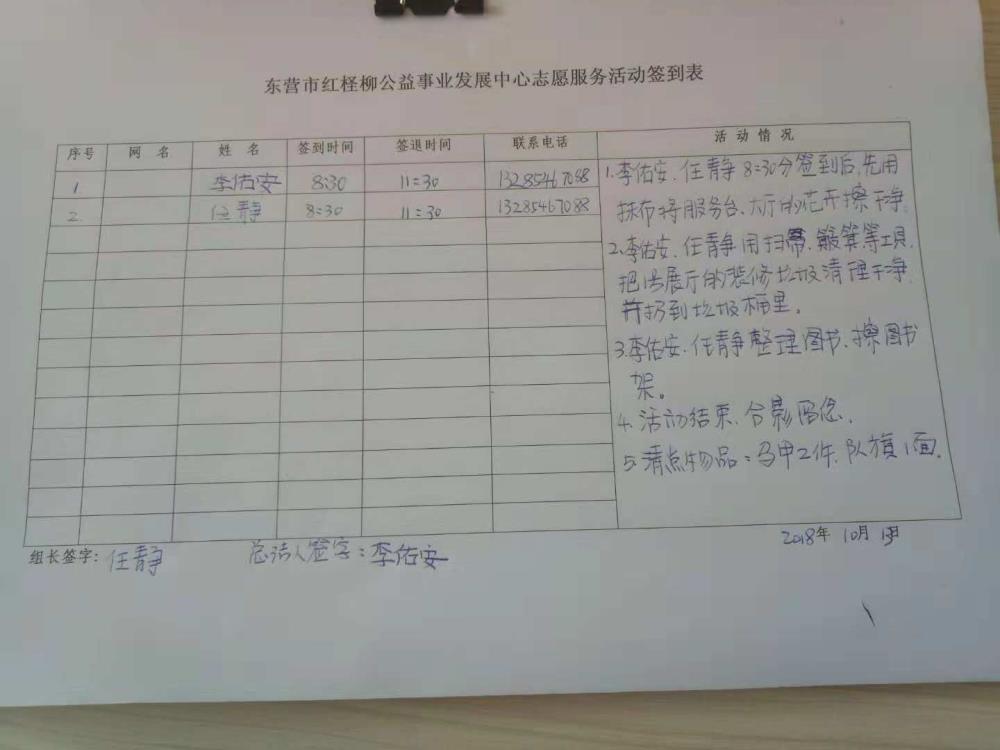 东营市红柽柳公益事业发展中心志愿服务活动签到表
序号 网名 姓名 签到时间 签退时间 联系电话 活动情况
1 李佑安 8:30 11:30 13285467088
2 任静 8:30 11:30 13285467088
1.李佑安、任静8:30分签到后,先用
抹布将服务台、大厅的花卉擦干净。
2.李佑安、任静用扫帚、簸箕等工具,
把1号展厅的装修垃圾清理干净
并扔到垃圾桶里。
3.李佑安、任静整理图书、擦图书
架。
4.活动结束,合影留念。
5.清点物品:马甲2件,队旗1面。
2018年10月13日
组长签字:任静 总结人签字:李佑安